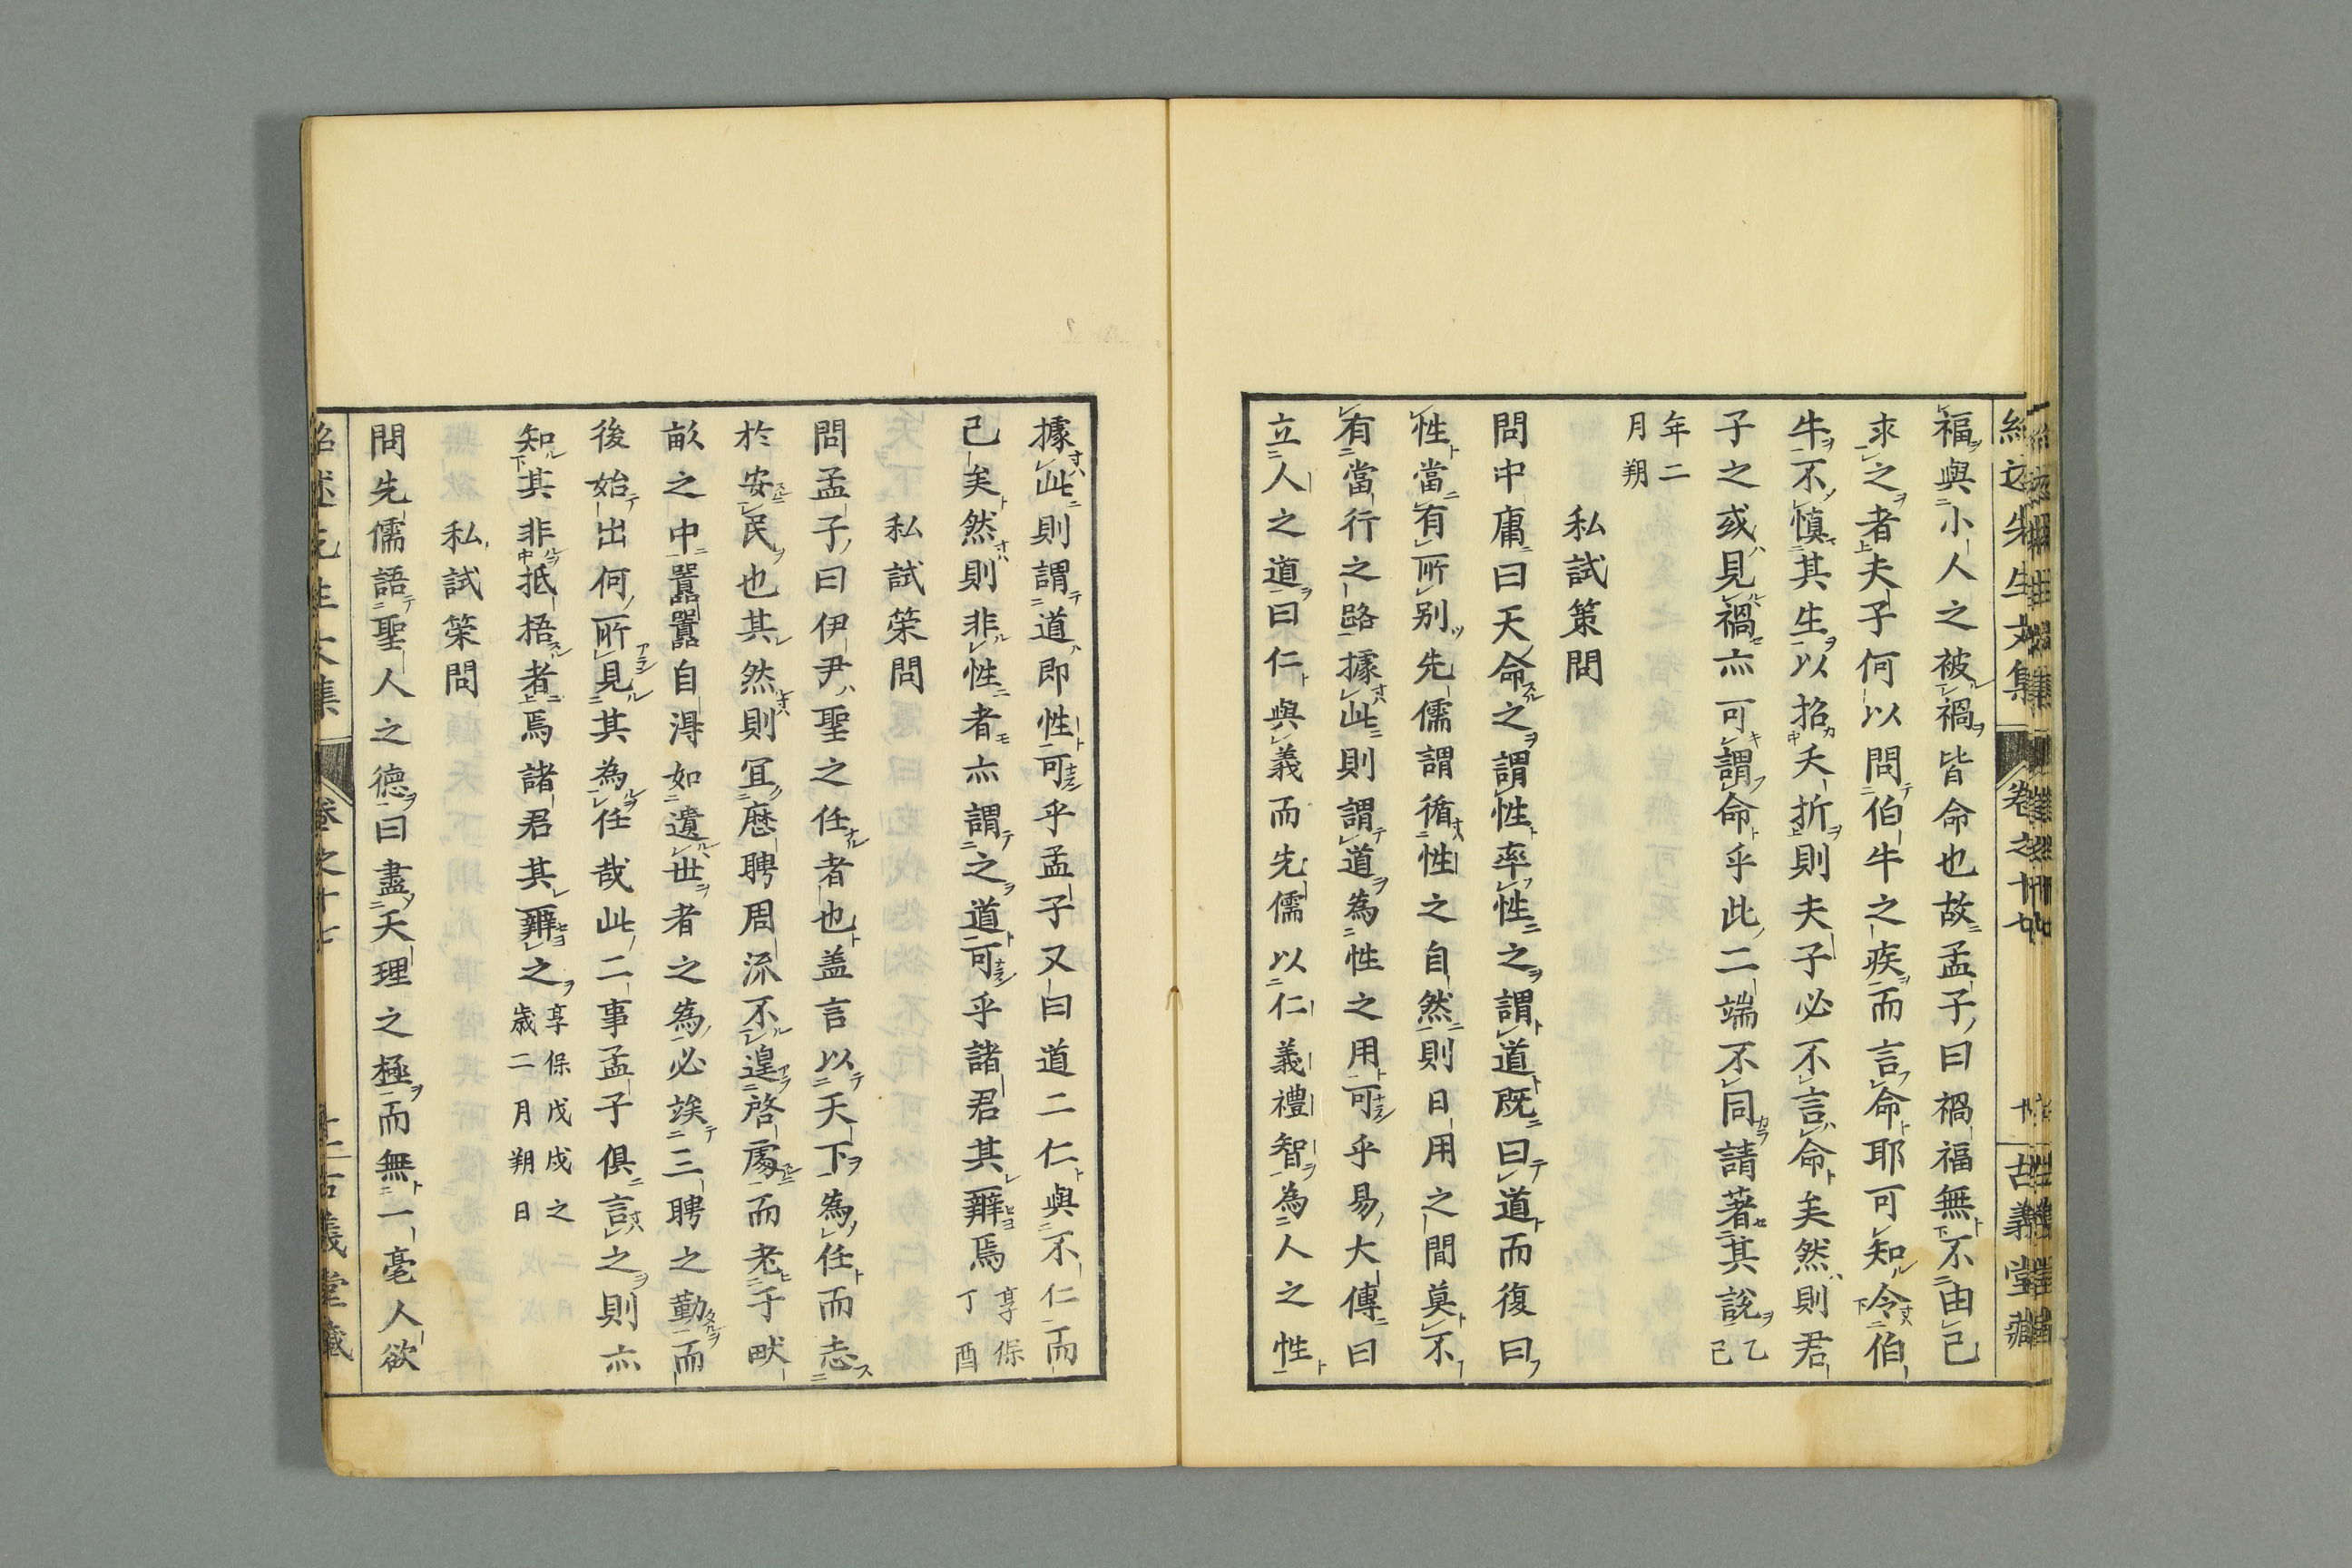 福與小人之被禍皆命也故孟子曰禍福無不由己
求之者夫子何以問伯牛之疾而言命耶可知令伯
牛不慎其生以招夭折則夫子必不言命矣然則君
子之或見禍亦可謂命乎此二端不同請著其說乙己
年二月朔
私試策問
問中庸曰天命之謂性率性之謂道既曰道而復曰
性當有所別先儒謂循性之自然則日用之間莫不
有當行之路據此則謂道為性之用可乎易大傳曰
立人之道曰仁與義而先儒以仁義禮智為人之性
據此則謂道即性可乎孟子又曰道二仁與不仁而
已矣然則非性者亦謂之道可乎諸君其辨焉享保丁酉
私試策問
問孟子曰伊尹聖之任者也盖言以天下為任而志
於安民也其然則宜歷聘周流不遑啓處而老于畎
畝之中囂囂自得如遺世者之為必竢三聘之勤而
後始出何所見其為任哉此二事孟子俱言之則亦
知其非抵捂者焉諸君其辨之享保戊戌之歲二月朔日
私試策問
問先儒語聖人之德曰盡天理之極而無一毫人欲
卷之十七
古義堂藏